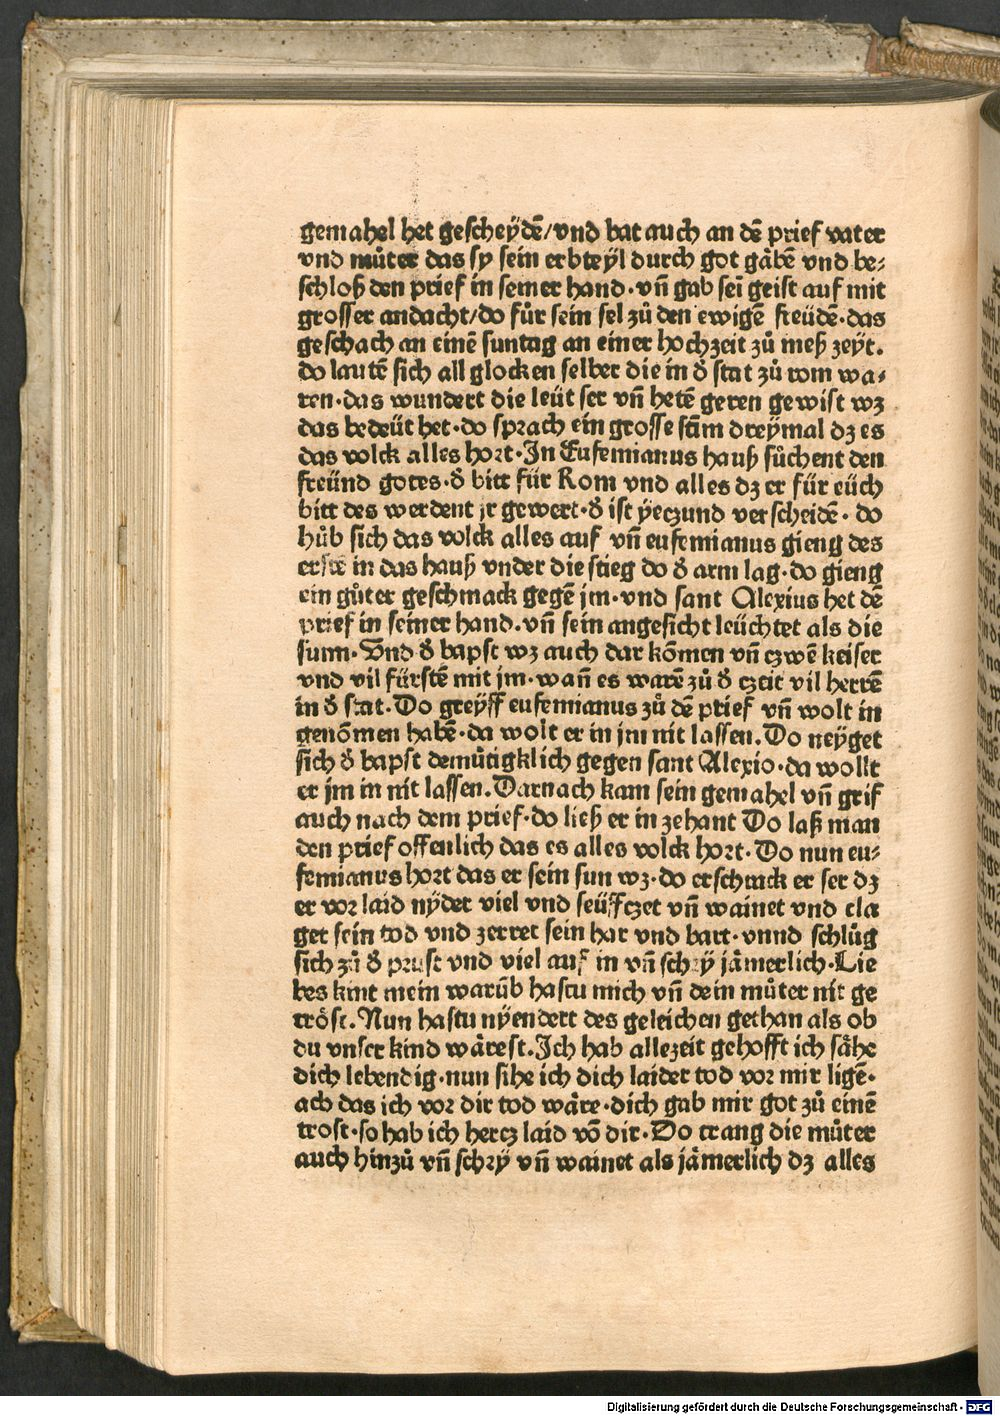 gemahel het gescheydē/vnd bat auch an dē prief vater
vnd můter das sy sein erbteyl durch got gåbē vnd be⸗
schloß den prief in seiner hand·vñ gab sei geist auf mit
grosser andacht/do fůr sein sel zů den ewigē freüdē·das
geschach an einē suntag an einer hochzeit zů meß zeyt.
do lautē sich all glocken selber die in d̄ stat zů rom wa⸗
ren·das wundert die leüt ser vñ hetē geren gewist wz
das bedeüt het·do sprach ein grosse stim̄ dreymal dz es
das volck alles hort·In Eufemianus hauß sůchent den
freünd gotes·d̄ bitt für Rom vnd alles dz er für eüch
bitt des werdent jr gewert·d̄ ist ÿeczund verscheidē·do
hůb sich das volck alles auf vñ eufemianus gieng des
erstē in das hauß vnder die stieg do d̄ arm lag·do gieng
ein gůter geschmack gegē jm·vnd sant Alexius het dē
prief in seiner hand·vñ sein angesicht leüchtet als die
sunn·Vnd d̄ bapst wz auch dar kōmen vñ czwē keiser
vnd vil fürstē mit jm·wañ es warē zů d̄ czeit vil herrē
in d̄ stat·Do greyff eufemianus zů dē prief vñ wolt in
genōmen habē·da wolt er in jm nit lassen.Do neyget
sich d̄ bapst demůtigklich gegen sant Alexio·da wollt
er jm in nit lassen.Darnach kam sein gemahel vñ grif
auch nach dem prief·do ließ er in zehant Do laß man
den prief offenlich das es alles volck hort·Do nun eu⸗
femianus hort das er sein sun wz·do erschrack er ser dz
er vor laid nyder viel vnd seüfczet vñ wainet vnd cla
get sein tod vnd zerret sein har vnd bart·vnnd schlůg
sich zů d̄ prust vnd viel auf in vñ schry jåmerlich·Lie
bes kint mein warūb hastu mich vñ dein můter nit ge
tröst.Nun hastu nyendert des geleichen gethan als ob
du vnser kind wårest.Ich hab allezeit gehofft ich såhe
dich lebendig·nun sihe ich dich laider tod vor mir ligē·
ach das ich vor dir tod wåre·dich gab mir got zů einē
trost·so hab ich hercz laid vō dir·Do trang die můter
auch hinzů vñ schry vñ wainet als jåmerlich dz alles
Digitalisierung gefördert durch die Deutsche Forschungsgemeinschaft - DFG